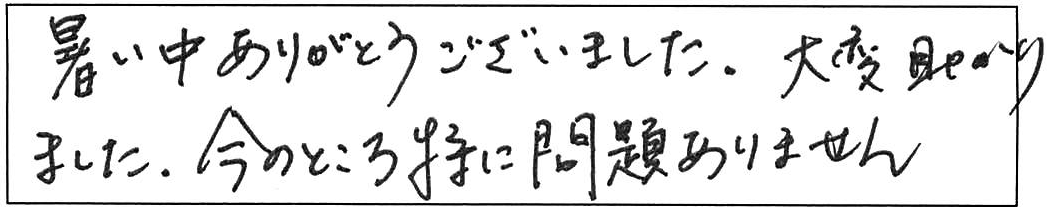 暑い中ありがとうございました。大変助かり
ました。今のところ特に問題ありません